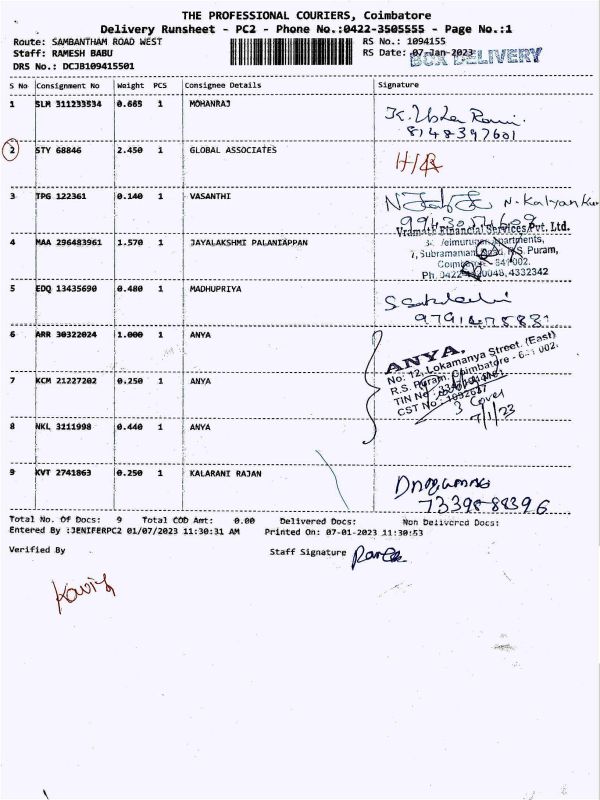 THE PROFESSIONAL COURIERS, Coimbatore
Delivery Runsheet - PC2 - Phone No.:0422-3505555 - Page No.:1
Route: SAMBANTHAM ROAD WEST RS No.: 1094155
Staff: RAMESH BABU RS Date: 07-Jan-2023 BOX DELIVERY
DRS No.: DCJB109415501
S No Consignment No Weight PCS Consignee Details Signature
1 SLM 311233534 0.665 1 MOHANRAJ
8148397601
2 STY 68846 2.450 1 GLOBAL ASSOCIATES
3 TPG 122361 0.140 1 VASANTHI
Financial Services Pvt. Ltd.
4 MAA 296483961 1.570 1 JAYALAKSHMI PALANIAPPAN
Apartments,
7, Subramaniam Road, R.S. Puram,
641 002.
4332342
5 EDQ 13435690 0.480 1 MADHUPRIYA
6 ARR 30322024 1.000 1 ANYA
ANYA.
No: 12, Lokamanya Street, (East)
R.S. Puram, Coimbatore - 641 002.
TIN No
CST No.
7 KCM 21227202 0.250 1 ANYA
3 Cover
7/1/23
8 NKL 3211998 0.440 1 ANYA
9 KVT 2741863 0.250 1 KALARANI RAJAN
Total No. Of Docs: 9 Total COD Amt: 0.00 Delivered Docs: Non Delivered Docs:
Entered By :JENIFERPC2 01/07/2023 11:30:31 AM Printed On: 07-01-2023 11:30:53
Verified By Staff Signature